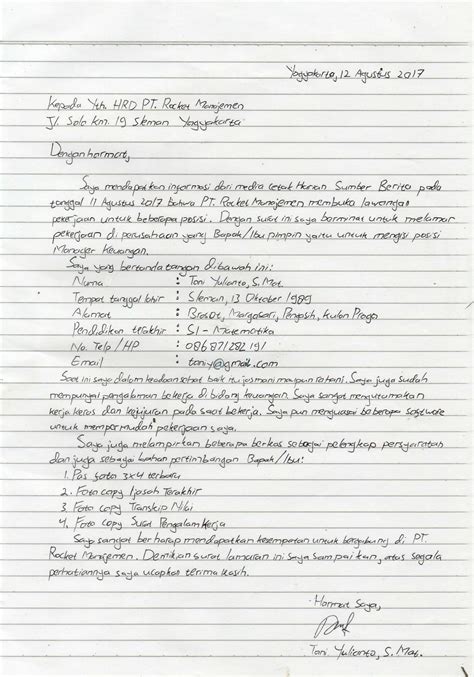 Yogyakarta, 12 Agustus 2017
Kepada Yth. HRD PT. Rocket Manajemen
Jl. Solo km. 19 Sleman Yogyakarta
Dengan hormat,
Saya mendapatkan informasi dari media cetak Harian Sumber Berita pada
tanggal 11 Agustus 2017 bahwa PT. Rocket Manajemen membuka lawangan
pekerjaan untuk beberapa posisi. Dengan surat ini saya berminat untuk melamar
pekerjaan di perusahaan yang Bapak/Ibu pimpin yaitu untuk mengisi posisi
Manager Keuangan.
Saya yang bertanda tangan dibawah ini:
Nama : Toni Yulianto, S. Mat.
Tempat tanggal lahir : Sleman, 13 Oktober 1989
Alamat : Brosot, Margosari, Pengasih, Kulon Progo
Pendidikan terakhir : S1 - Matematika
No. Telp / HP :
Email : toniy@gmail.com
Saat ini saya dalam keadaan sehat baik itu jasmani maupun rohani. Saya juga sudah
mempunyai pengalaman bekerja di bidang keuangan. Saya sangat mengutamakan
kerja keras dan kejujuran pada saat bekerja. Saya pun menguasai beberapa software
untuk mempermudah pekerjaan saya.
Saya juga melampirkan beberapa berkas sebagai pelengkap persyaratan
dan juga sebagai bahan pertimbangan Bapak/Ibu:
1. Pas foto 3x4 terbaru
2. Foto copy Ijasah Terakhir
3. Foto copy Transkip Nilai
4. Foto copy Surat Pengalam Kerja
Saya sangat berharap mendapatkan kesempatan untuk bergabung di PT.
Rocket Manajemen. Demikan surat lamaran ini saya sampaikan, atas segala
perhatiannya saya ucapkan terima kasih.
Hormat Saya,
Toni Yulianto, S. Mat.